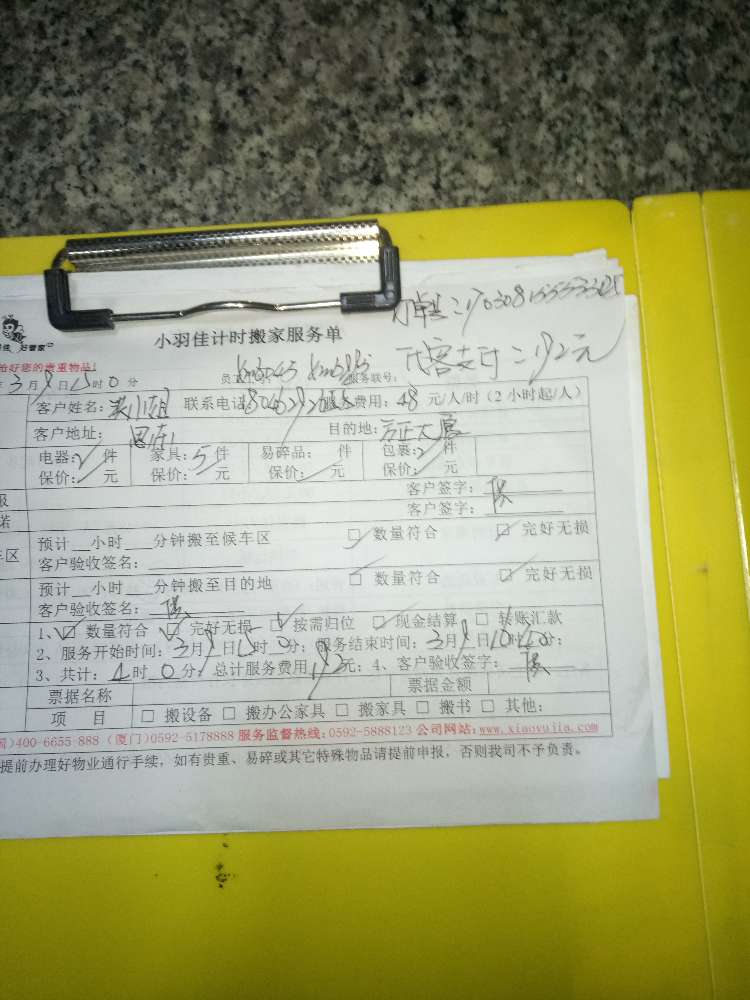 小羽佳计时搬家服务单
好管家
给好您的贵重物品!
3月9日15时0分 员工 服务联号:
客户姓名: 小姐 联系电话 费用: 48 元/人/时 (2 小时起/人)
客户地址: 思 目的地: 方正大厦
电器: 2 件 家具: 5 件 易碎品: 件 包裹: 2 件
保价: 元 保价: 元 保价: 元 保价: 元
客户签字:
客户签字:
预计 小时 分钟搬至候车区 □ 数量符合 □ 完好无损
车区 客户验收签名:
预计 小时 分钟搬至目的地 □ 数量符合 □ 完好无损
客户验收签名:
1、□ 数量符合 □ 完好无损 □ 按需归位 □ 现金结算 □ 转账汇款
2、服务开始时间: 3月9日15时0分; 服务结束时间: 3月9日
3、共计: 4时0分; 总计服务费用192元; 4、客户验收签字:
票据名称 票据金额
项 目 □ 搬设备 □ 搬办公家具 □ 搬家具 □ 搬书 □ 其他:
)400-6655-888 (厦门)0592-5178888 服务监督热线:0592-5888123 公司网站:www.xiaoyujia.com
提前办理好物业通行手续, 如有贵重、易碎或其它特殊物品请提前申报, 否则我司不予负责。